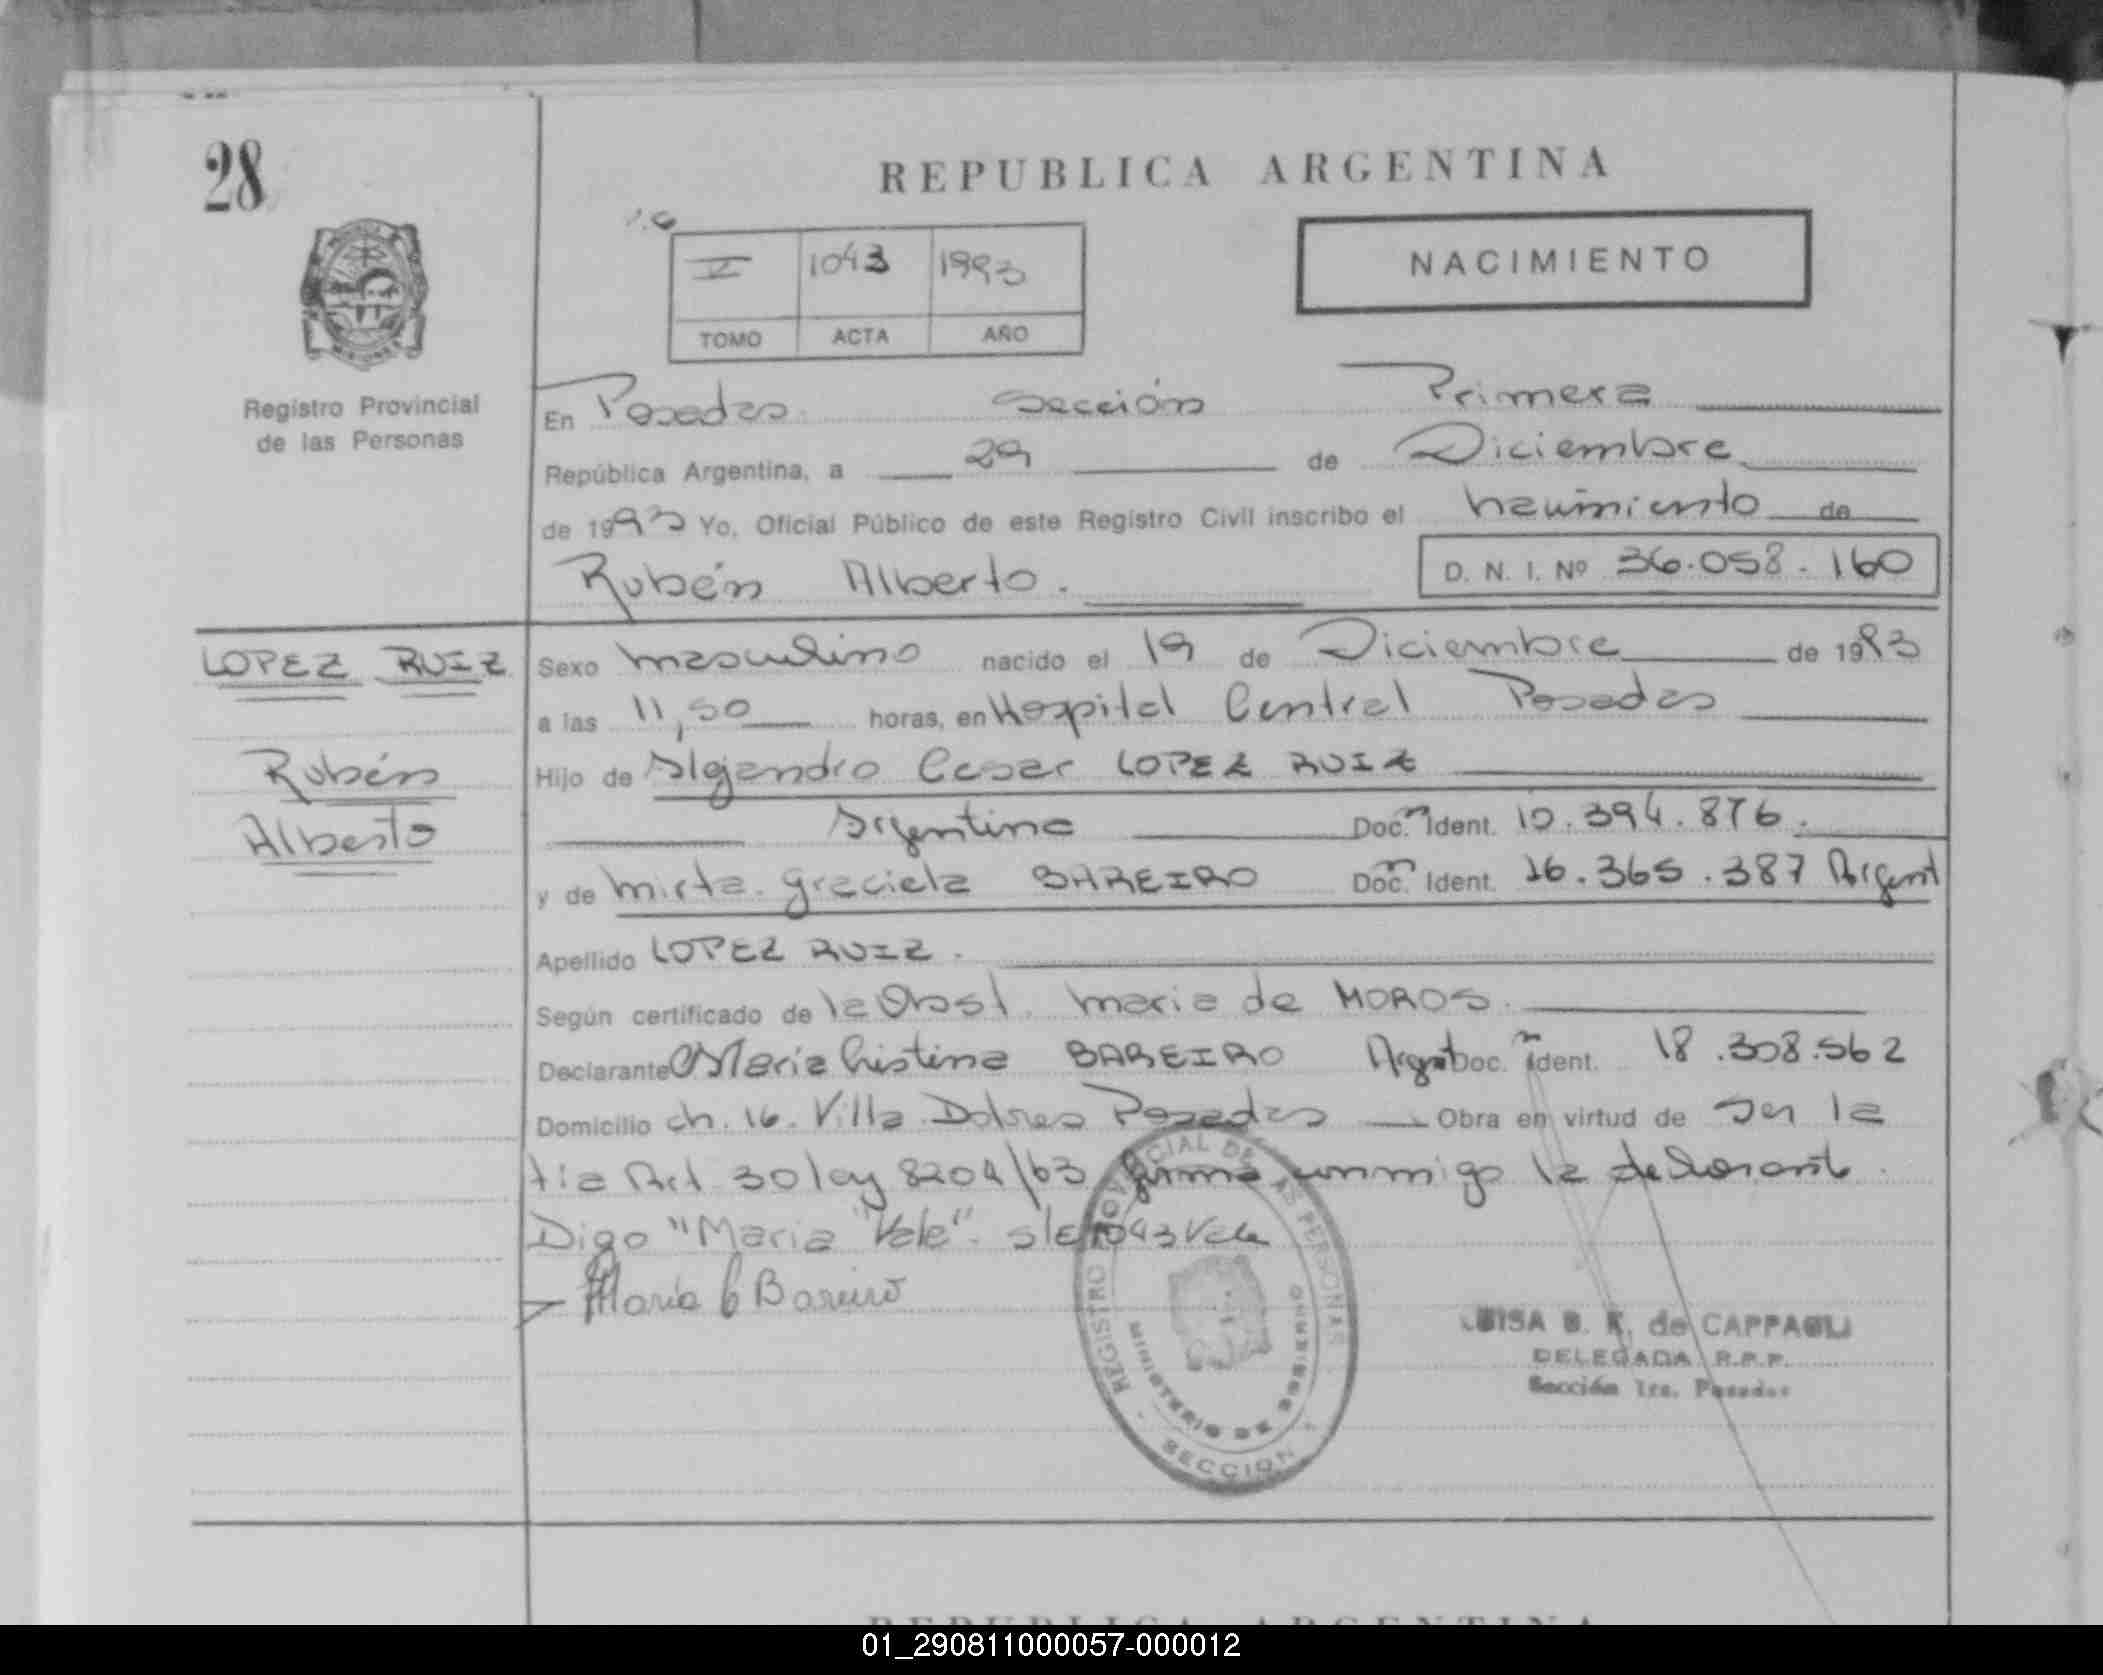 28
REPUBLICA ARGENTINA
V 1043 1993
TOMO ACTA AÑO
NACIMIENTO
Registro Provincial
de las Personas
En Posadas Sección Primera
República Argentina, a 29 de Diciembre
de 1993 Yo, Oficial Público de este Registro Civil inscribo el nacimiento de
Rubén Alberto. D. N. I. Nº 36.058.160
LOPEZ RUIZ
Rubén
Alberto
Sexo masculino nacido el 19 de Diciembre de 1993
a las 11,50 horas, en Hospital Central Posadas
Hijo de Alejandro Cesar LOPEZ RUIZ
Argentino Doc. Ident. 10.394.876.
y de Mirta Graciela BAREIRO Doc. Ident. 16.365.387 Argent
Apellido LOPEZ RUIZ.
Según certificado de la Obst. Maria de MOROS.
Declarante Maria Cristina BAREIRO Argent Doc. Ident. 18.308.562
Domicilio ch. 16. Villa Dolores Posadas Obra en virtud de ser la
tia Art 30 ley 8204/63 firma conmigo la declarante.
Digo "Maria" Vale". s/e 1043 Vale
Maria C Bareiro
REGISTRO PROVINCIAL DE LAS PERSONAS
MINISTERIO DE GOBIERNO
SECCION
LUISA B. K. de CAPPAGLI
DELEGADA R.P.P.
Sección 1ra. Posadas
REPUBLICA ARGENTINA
01_290811000057-000012